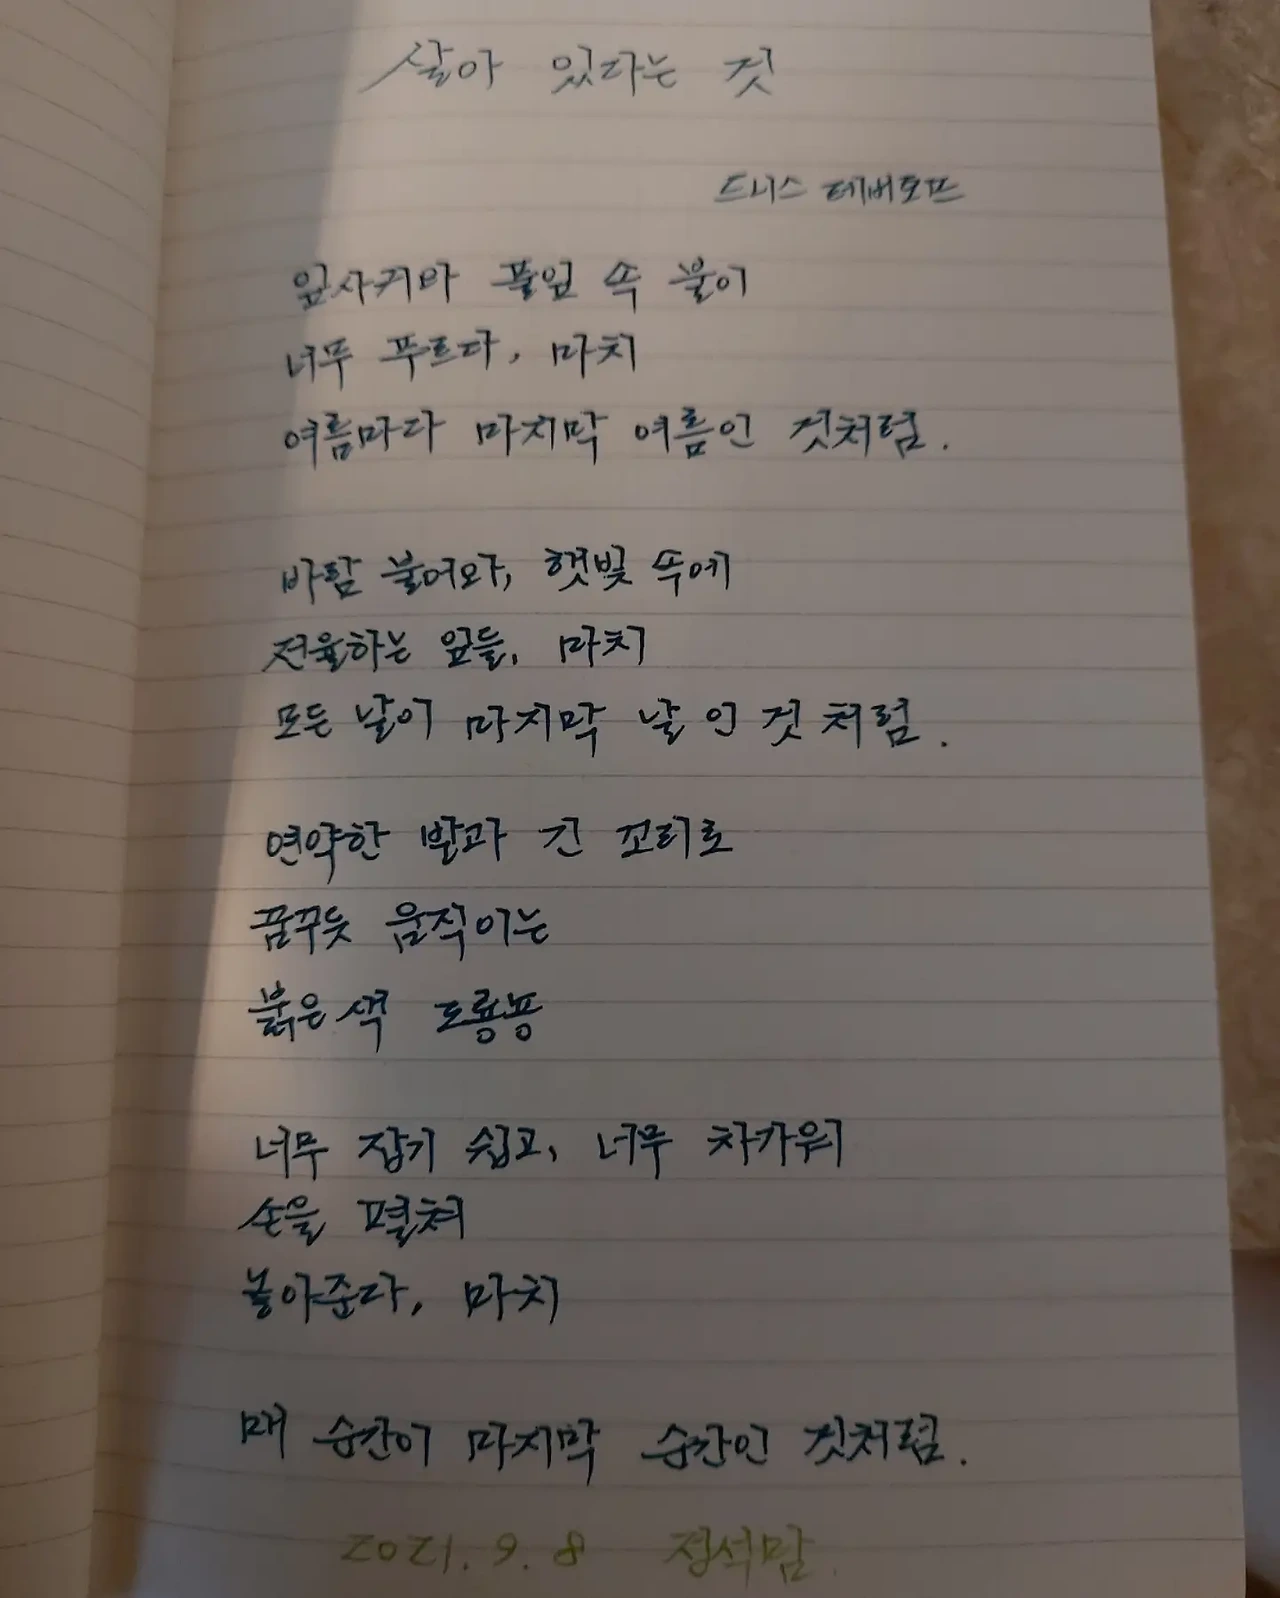 살아 있다는 것
드니스 레버토프
잎사귀와 풀잎 속 불이
너무 푸르다, 마치
여름마다 마지막 여름인 것처럼.
바람 불어와, 햇빛 속에
전율하는 잎들, 마치
모든 날이 마지막 날인 것처럼.
연약한 발과 긴 꼬리로
꿈꾸듯 움직이는
붉은색 도롱뇽
너무 잡기 쉽고, 너무 차가워
손을 펼쳐
놓아준다, 마치
매 순간이 마지막 순간인 것처럼.
2021. 9. 8 정석맘